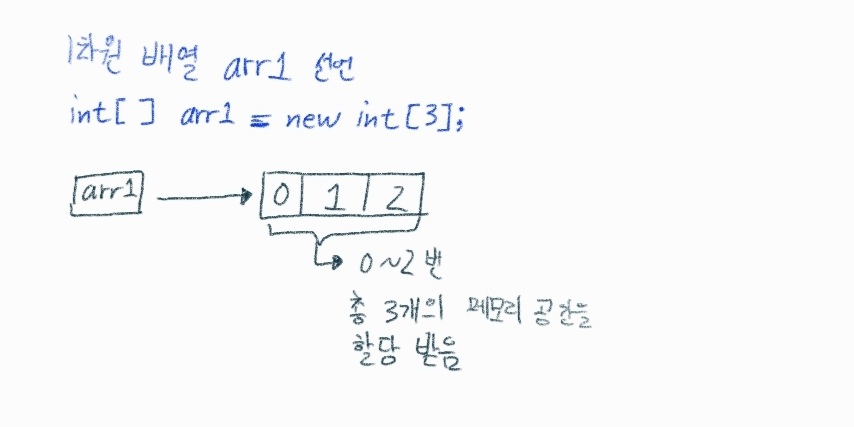 1차원 배열 arr1 선언
int[ ] arr1 = new int[3];
arr1
0 1 2
0~2 번
총 3개의 메모리 공간을
할당 받음